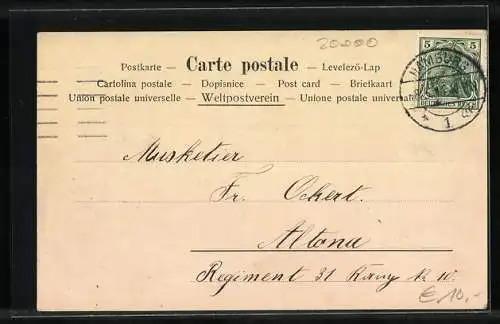 20000
Postkarte — Carte postale — Levelező-Lap
Cartolina postale — Dopisnice — Post card — Briefkaart
Union postale universelle — Weltpostverein — Unione postale universale
5 5
HAMBURG
1
Musketier
Fr. Ockert.
Altona
Regiment 31 № 10.
€ 10,-